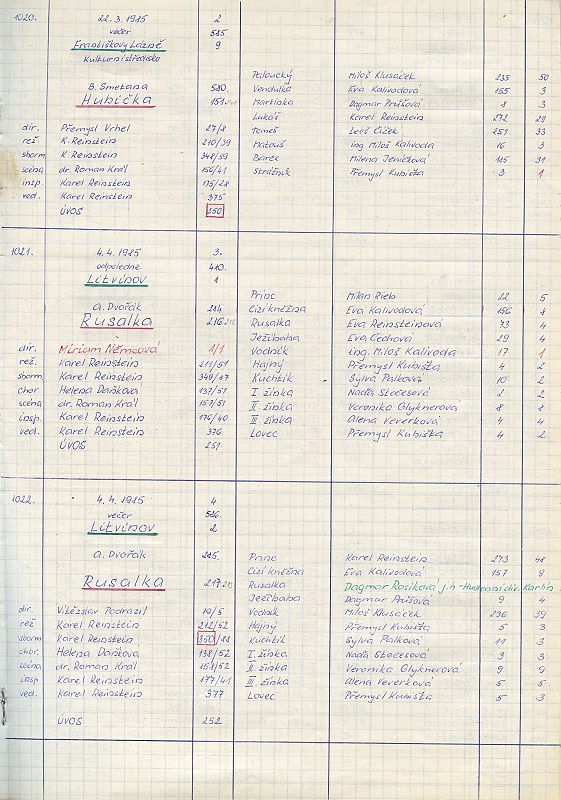 1020. 22.3.1985 2
večer 585
Františkovy Lázně 9
Kulturní středisko
Paloucký Miloš Klusáček 235 50
B. Smetana 580. Vendulka Eva Kalivodová 155 3
Hubička 151. Martinka Dagmar Průšová 8 3
Lukáš Karel Reinstein 272 29
dir. Přemysl Vrhel 27/8 Tomeš Leoš Čížek 251 33
rež. K. Reinstein 210/39 Matouš ing Miloš Kalivoda 16 3
sborm K. Reinstein 348/59 Barče Milena Jeničková 115 31
scéna dr. Roman Král 156/41 Strážník Přemysl Kubišta 3 1
insp. Karel Reinstein 175/28
ved. Karel Reinstein 375
ÚVOS 250
1021. 4.4.1985 3.
odpoledne 410.
Litvínov 1
Princ Milan Rieb 22 5
A. Dvořák 214 Cizí kněžna Eva Kalivodová 156 8
Rusalka 216 Rusalka Eva Reinsteinová 73 4
Ježibaba Eva Čedhová 29 4
dir. Miriam Němcová 1/1 Vodník ing. Miloš Kalivoda 17 1
rež. Karel Reinstein 211/51 Hajný Přemysl Kubišta 4 2
sborm. Karel Reinstein 349/47 Kuchtík Sylva Palková 10 2
chor Helena Daňková 137/51 I. žínka Naďa Stočesová 2 2
scéna dr. Roman Král 157/51 II. žínka Veronika Glyknerová 8 8
insp. Karel Reinstein 176/40 III žínka Alena Veverková 4 4
ved. Karel Reinstein 376 Lovec Přemysl Kubišta 4 2
ÚVOS 251
1022. 4.4.1985 4
večer 586.
Litvínov 2
A. Dvořák 215. Princ Karel Reinstein 273 48
Cizí kněžna Eva Kalivodová 157 9
Rusalka 217. Rusalka Dagmar Rosíková j.h - Hudební div. Karlín
Ježibaba Dagmar Průšová 9 4
dir. Vítězslav Podrazil 19/5 Vodník Miloš Klusáček 236 39
rež Karel Reinstein 212/52 Hajný Přemysl Kubišta 5 3
sborm Karel Reinstein 350/48 Kuchtík Sylva Palková 11 3
chor. Helena Daňková 138/52 I. žínka Naďa Stočesová 3 3
scéna dr. Roman Král 158/52 II. žínka Veronika Glyknerová 9 9
insp Karel Reinstein 177/41 III. žínka Alena Veverková 5 5
ved. Karel Reinstein 377 Lovec Přemysl Kubišta 5 3
ÚVOS 252